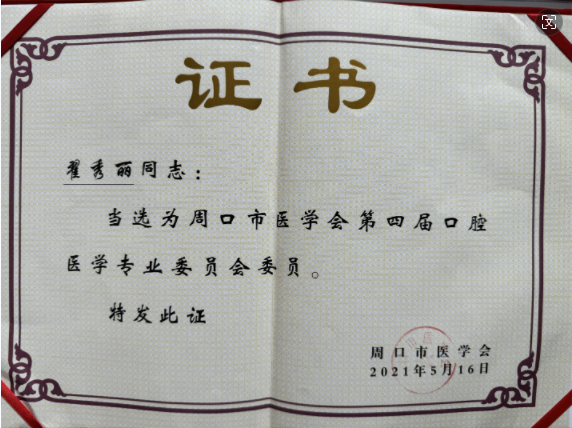 证书
翟秀丽同志：
当选为周口市医学会第四届口腔
医学专业委员会委员。
特发此证
周口市医学会
2021年5月16日